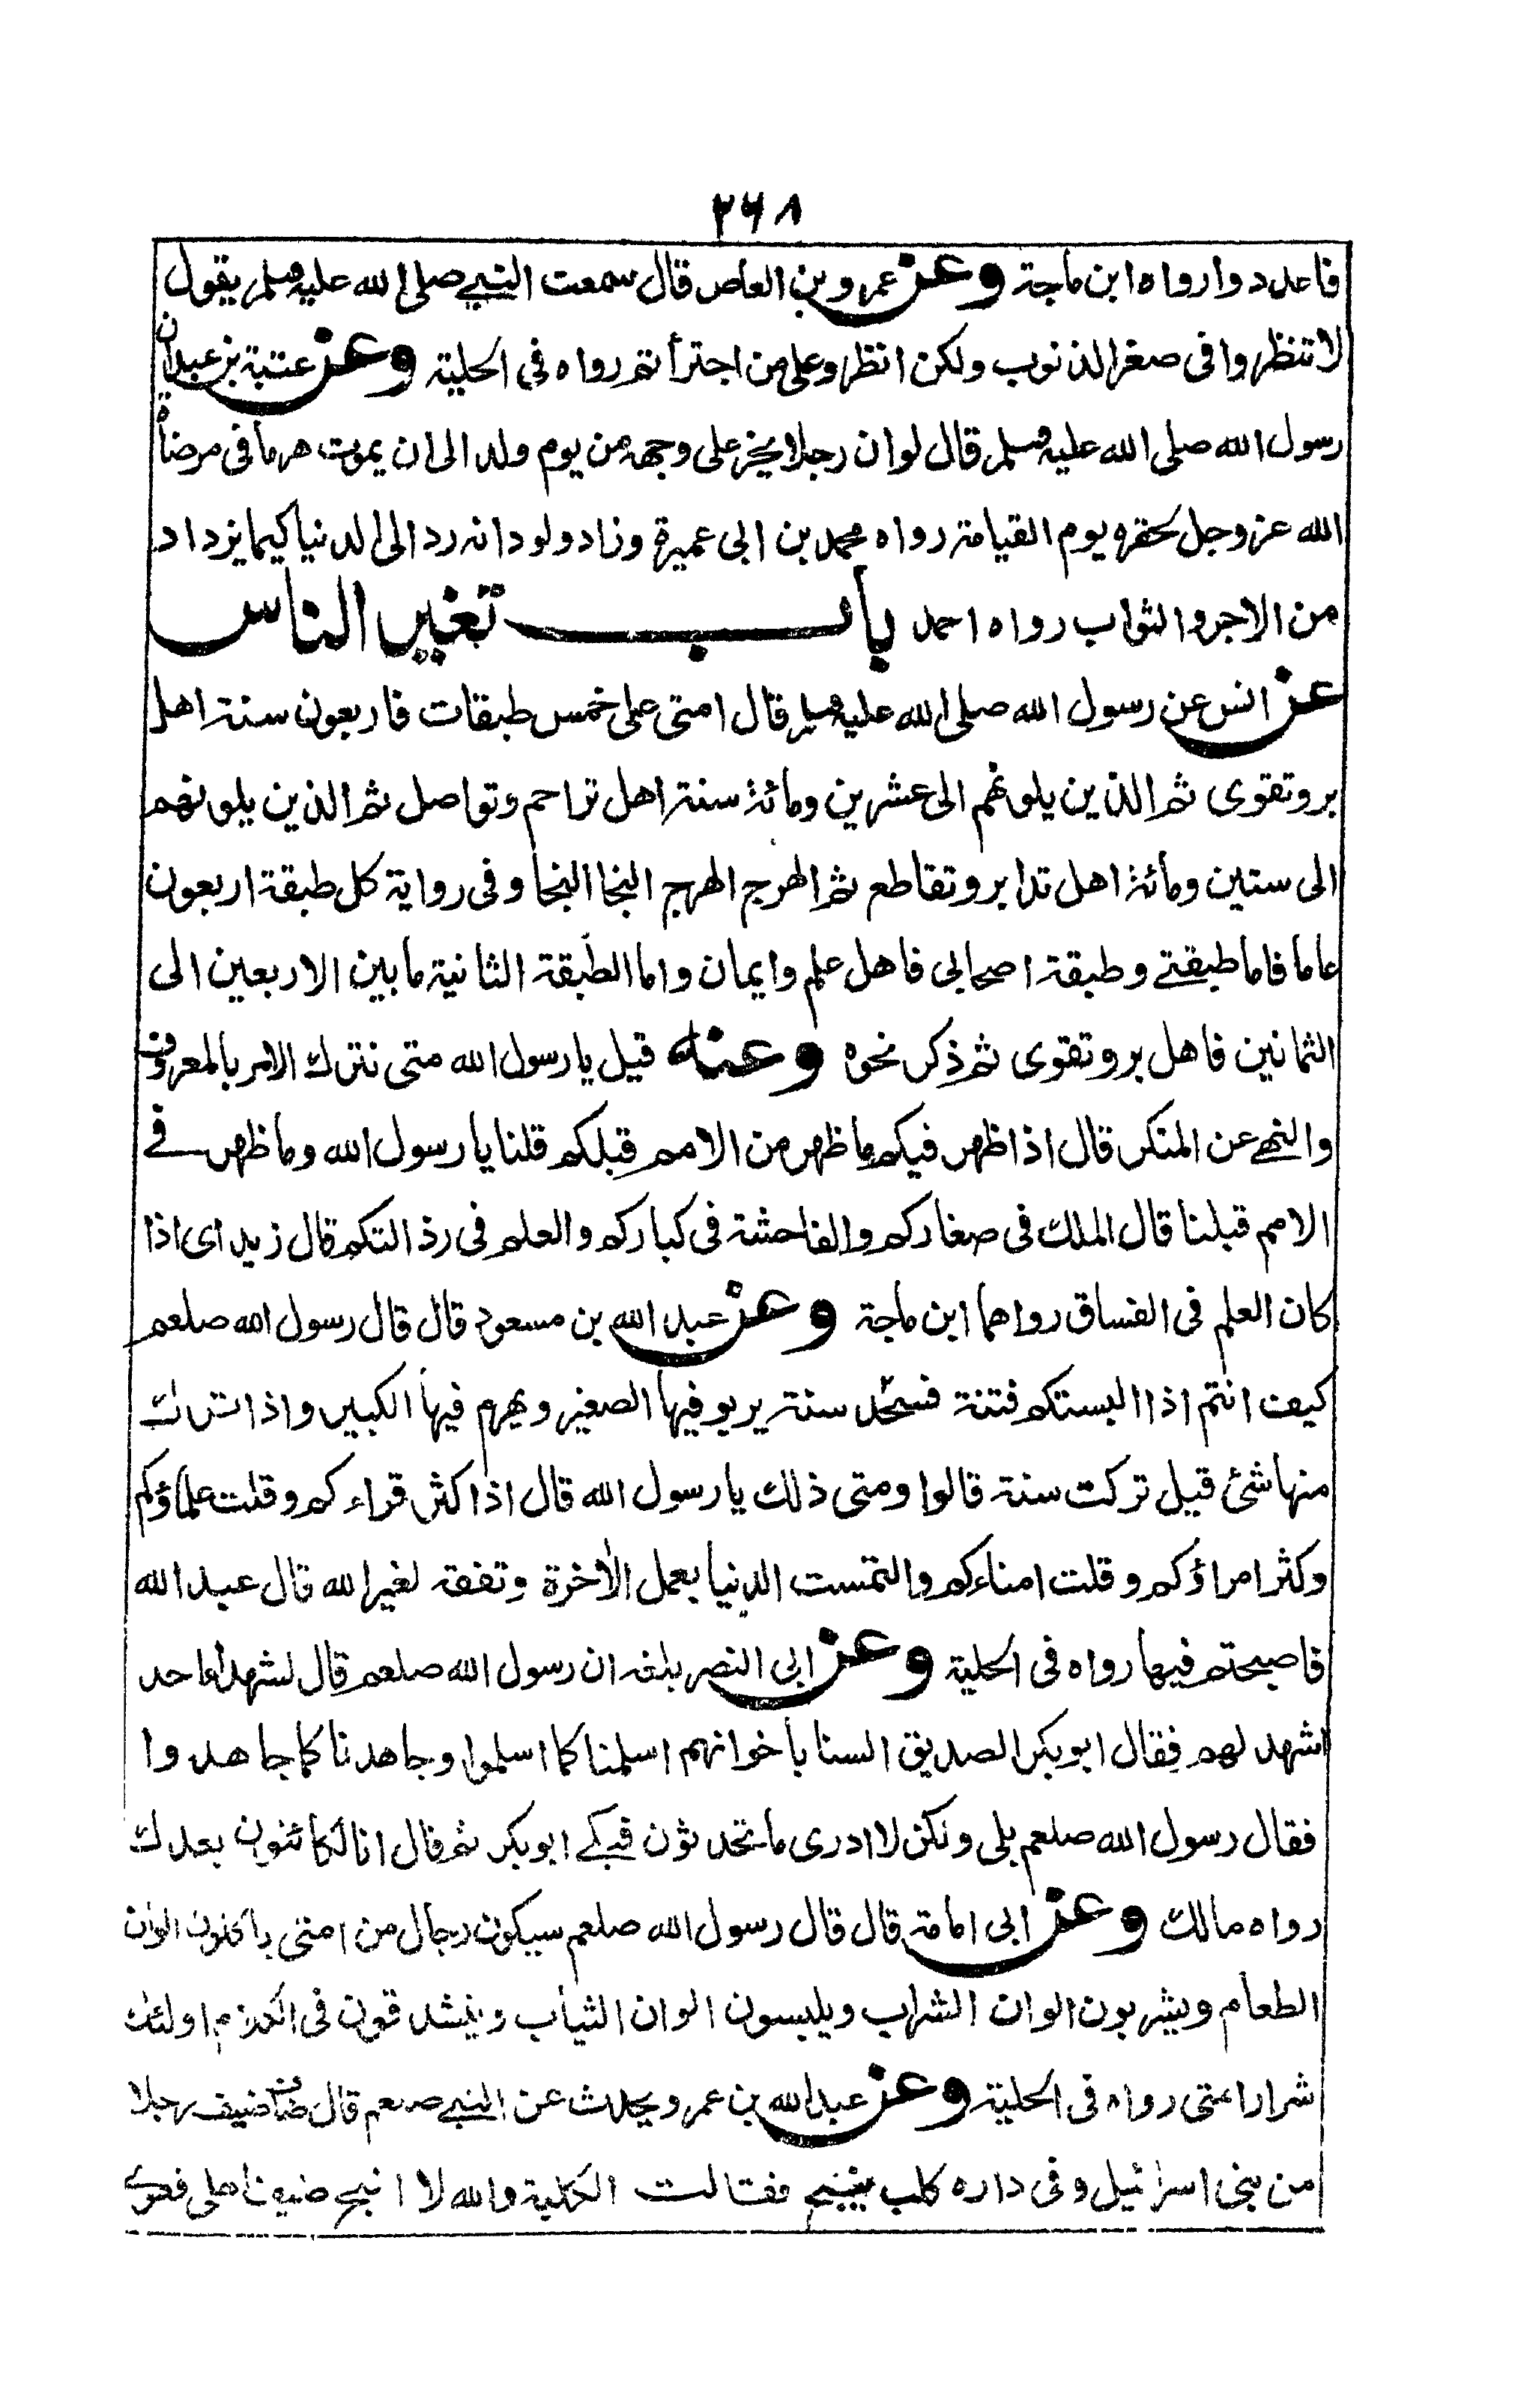 ۲۶۸
فاعدد وا رواه ابن ماجة وعن عمرو بن العاص قال سمعت النبي صلى الله عليه وسلم يقول
لا تنظروا فى صغر الذنوب ولكن انظروا على من اجترأتم رواه في الحلية وعن عتبة بن عبد ان
رسول الله صلى الله عليه وسلم قال لو ان رجلا يخر على وجهه من يوم ولد الى ان يموت هرما فى مرضاة
الله عز وجل لحقره يوم القيامة رواه محمد بن ابى عميرة وزاد ولود انه رد الى الدنيا كيما يزداد
من الاجر والثواب رواه احمد باب تغيير الناس
عن انس عن رسول الله صلى الله عليه وسلم قال امتى على خمس طبقات فاربعون سنة اهل
بر وتقوى ثم الذين يلونهم الى عشرين ومائة سنة اهل تراحم وتواصل ثم الذين يلونهم
الى ستين ومائة اهل تدابر وتقاطع ثم الهرج الهرج النجا النجا وفى رواية كل طبقة اربعون
عاما فاما طبقتے وطبقة اصحابى فاهل علم وايمان واما الطبقة الثانية ما بين الاربعين الى
الثمانين فاهل بر وتقوى ثم ذكر نحوه وعنه قيل يا رسول الله متى نترك الامر بالمعروف
والنهے عن المنكر قال اذا ظهر فيكم ما ظهر من الامم قبلكم قلنا يا رسول الله وما ظهر فے
الامم قبلنا قال الملك فى صغاركم والفاحشة فى كباركم والعلم فى رذالتكم قال زيد اى اذا
كان العلم فى الفساق رواهما ابن ماجة وعن عبد الله بن مسعود قال قال رسول الله صلعم
كيف انتم اذا البستكم فتنة فتتخذ سنة يربو فيها الصغير ويهرم فيها الكبير واذا ترك
منها شئ قيل تركت سنة قالوا ومتى ذلك يا رسول الله قال اذا كثر قراءكم وقلت علماؤكم
وكثر امراؤكم وقلت امناءكم والتمست الدنيا بعمل الآخرة وتفقه لغير الله قال عبد الله
فاصبحتم فيها رواه فى الحلية وعن ابى النصر بلغه ان رسول الله صلعم قال لشهداء احد
اشهد لهم فقال ابو بكر الصديق السنا باخوانهم اسلمنا كما اسلموا وجاهدنا كما جاهدوا
فقال رسول الله صلعم بلى ولكن لا ادرى ما تحدثون فبكے ابو بكر ثم قال انا لكائنون بعدك
رواه مالك وعن ابى امامة قال قال رسول الله صلعم سيكون رجال من امتى ياكلون الوان
الطعام ويشربون الوان الشراب ويلبسون الوان الثياب ويتشدقون فى الكلام اولئك
شرار امتى رواه فى الحلية وعن عبد الله بن عمرو يحدث عن النبے صلعم قال ضاف ضيف رجلا
من بنى اسرائيل وفى داره كلب فقالت الكلبة والله لا انبح ضيف اهلى